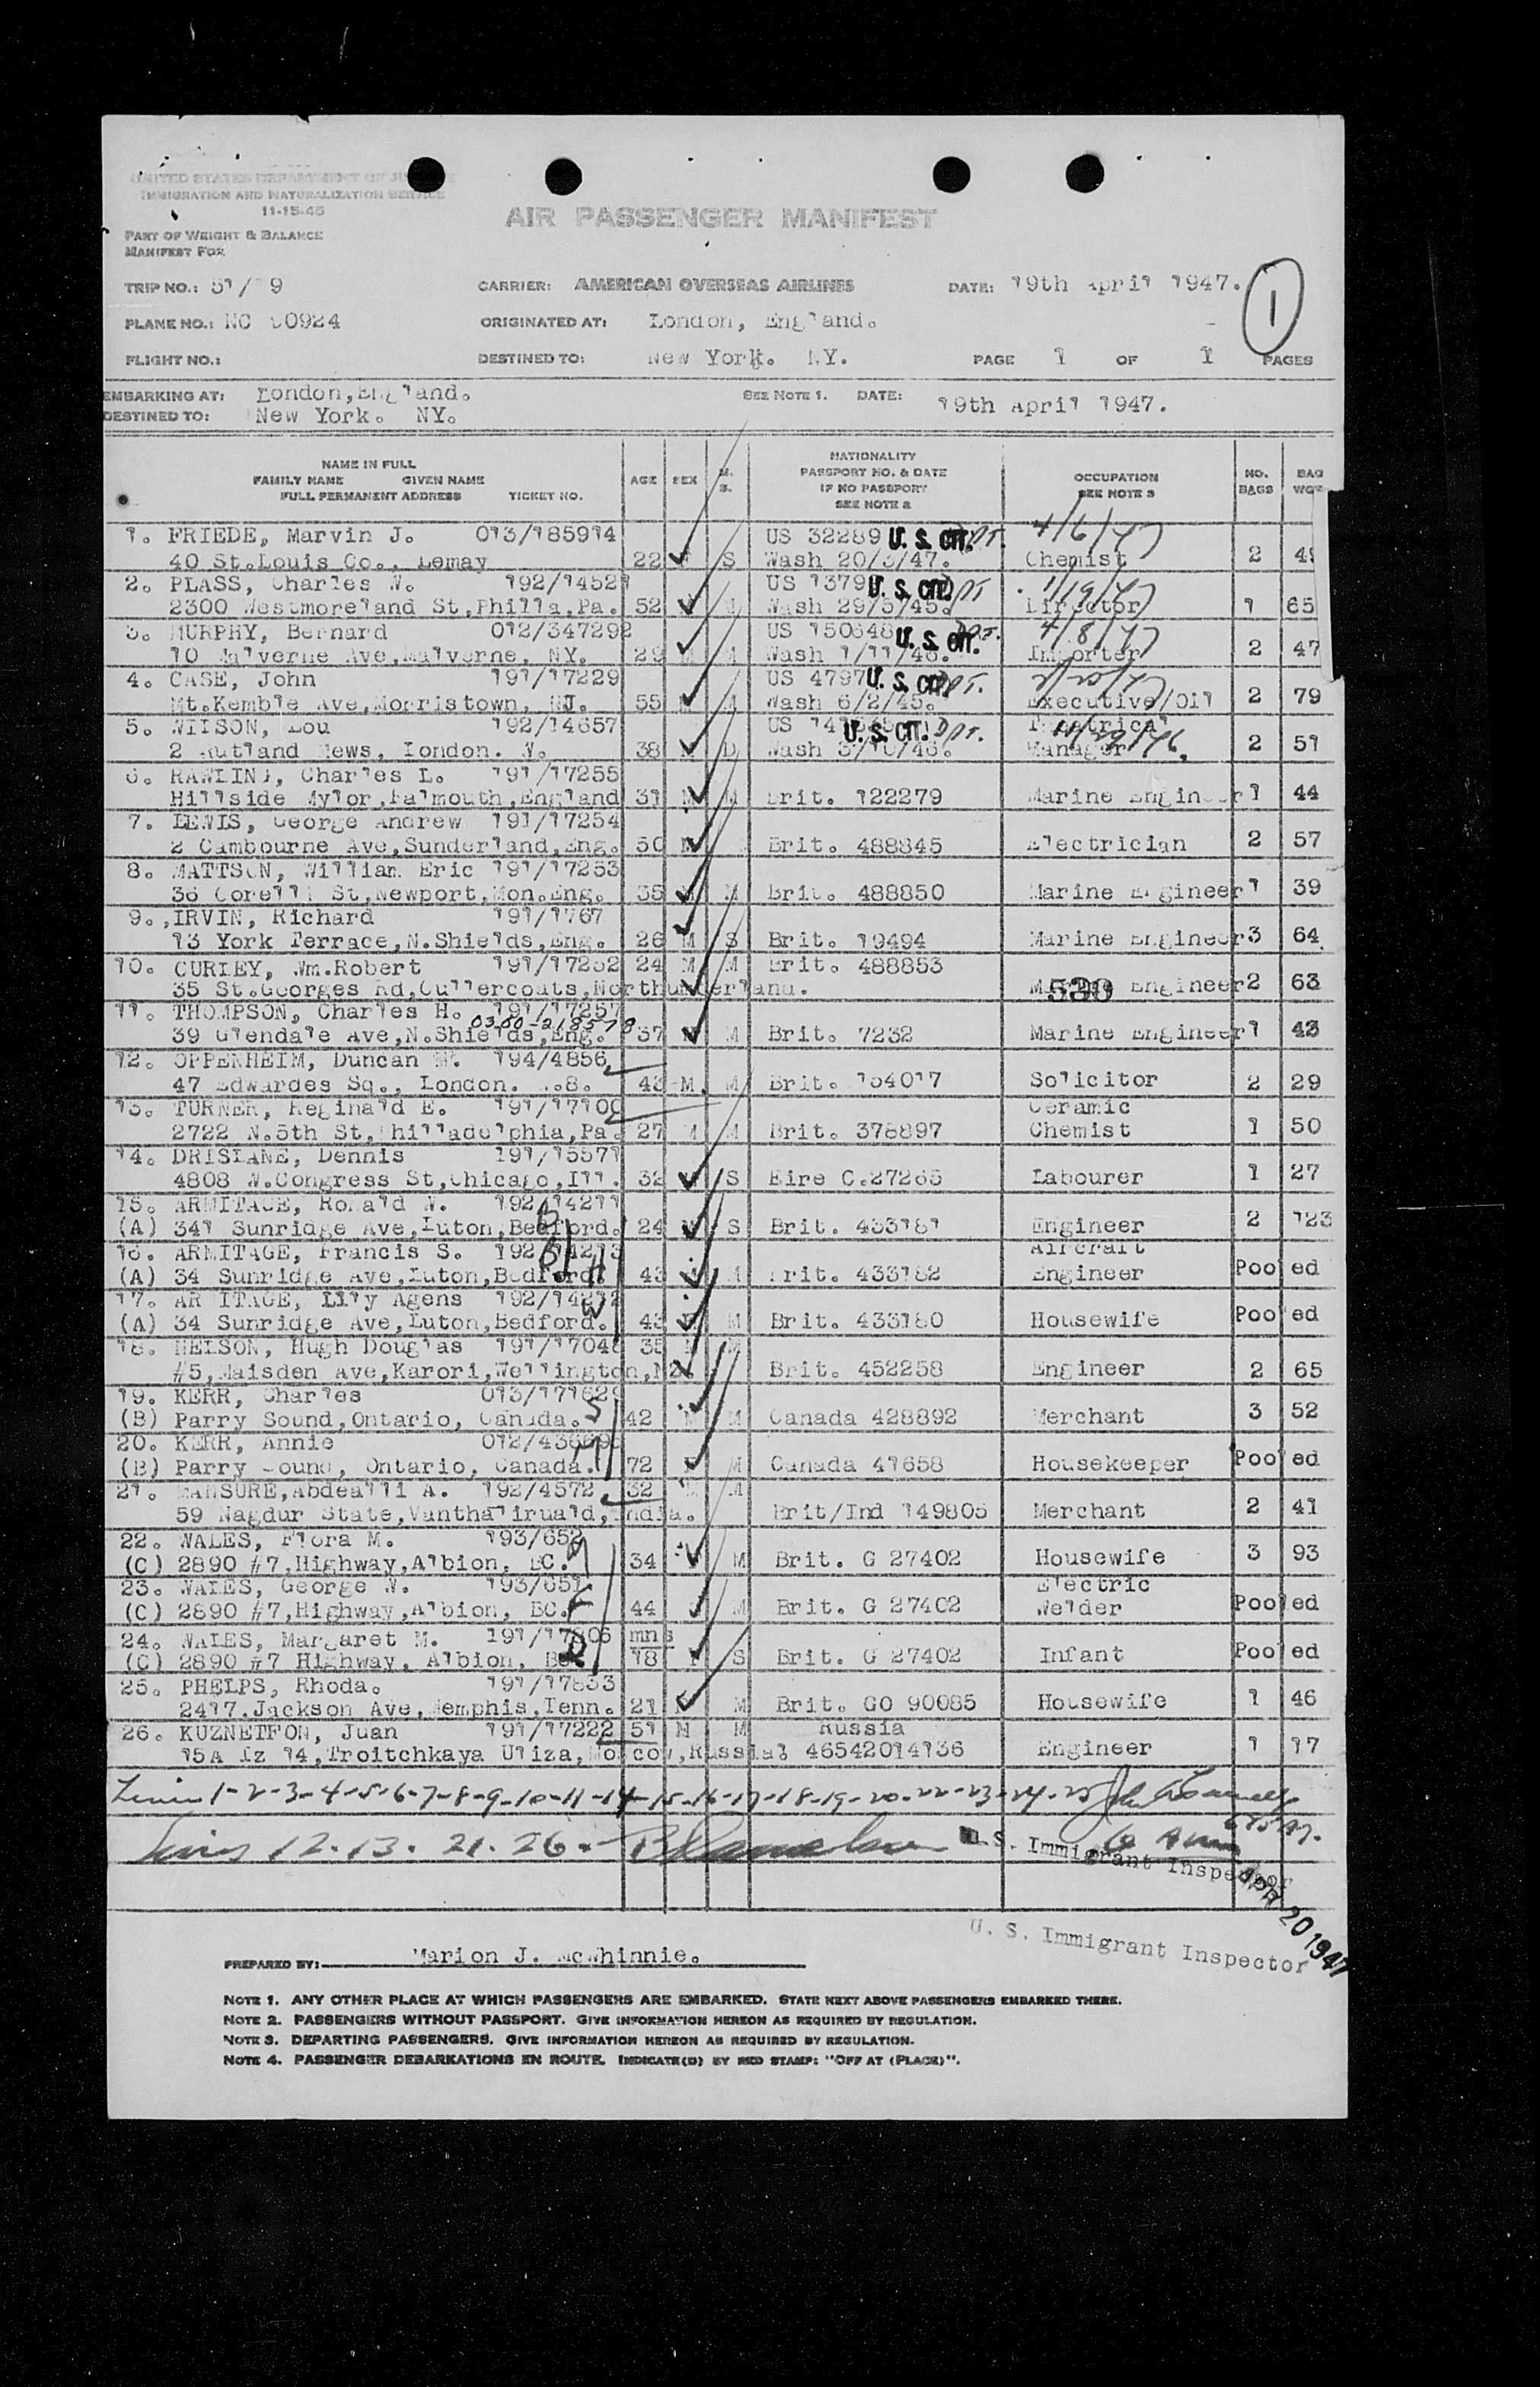 UNITED STATES DEPARTMENT OF JUSTICE
IMMIGRATION AND NATURALIZATION SERVICE
11-15-45
AIR PASSENGER MANIFEST
PART OF WEIGHT & BALANCE
MANIFEST FOR
TRIP NO.: 51/ 9 CARRIER: AMERICAN OVERSEAS AIRLINES DATE: 19th April 1947. 1
PLANE NO.: NC 90924 ORIGINATED AT: London, England.
FLIGHT NO.: DESTINED TO: New York. NY. PAGE 1 OF 1 PAGES
EMBARKING AT: London,England. SEE NOTE 1. DATE: 19th April 1947.
DESTINED TO: New York. NY.
NAME IN FULL
FAMILY NAME GIVEN NAME
FULL PERMANENT ADDRESS TICKET NO. AGE SEX M. S. NATIONALITY PASSPORT NO. & DATE IF NO PASSPORT SEE NOTE 2 OCCUPATION SEE NOTE 3 NO. BAGS BAG WGT
1. FRIEDE, Marvin J. 013/185914 US 32289 U. S. CIT. 4/6/47
40 St.Louis Co., Lemay 22 S Wash 20/3/47. Chemist 2
2. PLASS, Charles W. 192/14521 US 1379 U. S. CIT. 1/19/47
2300 Westmoreland St,Philla,Pa. 52 M Wash 29/5/45. Director 1 65
3. MURPHY, Bernard 012/347292 US 150648 U. S. CIT. 4/8/47
10 Malverne Ave,Malverne, NY. 29 M M Wash 1/11/46. Importer 2 47
4. CASE, John 191/17229 US 4797 U. S. CIT.
Mt.Kemble Ave,Morristown, NJ. 55 M M Wash 6/2/45. Executive/Oil 2 79
5. WILSON, Lou 192/14657 US U. S. CIT. Theatrical
2 Rutland Mews, London. W. 38 M D Wash 3/10/46. Manager 2 51
6. RAWLING, Charles L. 191/17255
Hillside Mylor,Falmouth,England 31 M M Brit. 122279 Marine Engineer 1 44
7. LEWIS, George Andrew 191/17254
2 Cambourne Ave,Sunderland,Eng. 50 M Brit. 488845 Electrician 2 57
8. MATTSON, William Eric 191/17253
36 Corelli St,Newport,Mon.Eng. 35 M M Brit. 488850 Marine Engineer 1 39
9. IRVIN, Richard 191/1767
13 York Terrace,N.Shields,Eng. 26 M S Brit. 19494 Marine Engineer 3 64
10. CURLEY, Wm.Robert 191/17252 24 M M Brit. 488853
35 St.Georges Rd,Cullercoats,Northumberland. 530 Marine Engineer 2 63
11. THOMPSON, Charles H. 191/17257
0300-218578
39 Glendale Ave,N.Shields,Eng. 37 M M Brit. 7232 Marine Engineer 1 43
12. OPPENHEIM, Duncan M. 194/4856
47 Edwardes Sq., London. W.8. 43 M. M Brit. 154017 Solicitor 2 29
13. TURNER, Reginald E. 191/17100 Ceramic
2722 N.5th St,Philladelphia,Pa. 27 M M Brit. 378897 Chemist 1 50
14. DRISLANE, Dennis 191/15571
4808 W.Congress St,Chicago,Ill. 32 M S Eire C.27265 Labourer 1 27
15. ARMITAGE, Ronald W. 192/14211
(A) 341 Sunridge Ave,Luton,Bedford. 24 M S Brit. 433181 Engineer 2 123
16. ARMITAGE, Francis S. 192/14213 Aircraft
(A) 34 Sunridge Ave,Luton,Bedford. 43 M M Brit. 433182 Engineer Pooled
17. ARMITAGE, Lily Agens 192/14212
(A) 34 Sunridge Ave,Luton,Bedford. 43 F M Brit. 433180 Housewife Pooled
18. NELSON, Hugh Douglas 191/17048 35 M M
#5,Maisden Ave,Karori,Wellington,NZ. Brit. 452258 Engineer 2 65
19. KERR, Charles 013/171629
(B) Parry Sound,Ontario, Canada. 42 M M Canada 428892 Merchant 3 52
20. KERR, Annie
(B) Parry Sound, Ontario, Canada. 72 F M Canada 41658 Housekeeper Pooled
21. MANSURE,Abdealli A. 192/4572 32 M M
59 Nagdur State,Vanthaliruald,India. Brit/Ind 149805 Merchant 2 41
22. WALES, Flora M. 193/652
(C) 2890 #7,Highway,Albion, BC. 34 M Brit. G 27402 Housewife 3 93
23. WALES, George W. 193/651 Electric
(C) 2890 #7,Highway,Albion, BC. 44 M Brit. G 27402 Welder Pooled
24. WALES, Margaret M. 191/17806 mns
(C) 2890 #7 Highway, Albion, BC. 18 F S Brit. G 27402 Infant Pooled
25. PHELPS, Rhoda. 191/17833
2417,Jackson Ave,Memphis,Tenn. 21 F M Brit. GO 90085 Housewife 1 46
26. KUZNETFON, Juan 191/17222 51 M M Russia
15A Iz 14,Troitchkaya Uliza,Moscow,Russia. 46542014136 Engineer 1 17
Lines 1-2-3-4-5-6-7-8-9-10-11-14-15-16-17-18-19-20-22-23-24-25
Lines 12. 13. 21. 26.
U. S. Immigrant Inspector
APR 20 1947
U. S. Immigrant Inspector
PREPARED BY: Marion J. McWhinnie.
NOTE 1. ANY OTHER PLACE AT WHICH PASSENGERS ARE EMBARKED. STATE NEXT ABOVE PASSENGERS EMBARKED THERE.
NOTE 2. PASSENGERS WITHOUT PASSPORT. GIVE INFORMATION HEREON AS REQUIRED BY REGULATION.
NOTE 3. DEPARTING PASSENGERS. GIVE INFORMATION HEREON AS REQUIRED BY REGULATION.
NOTE 4. PASSENGER DEBARKATIONS EN ROUTE. INDICATE(D) BY RED STAMP: "OFF AT (PLACE)".